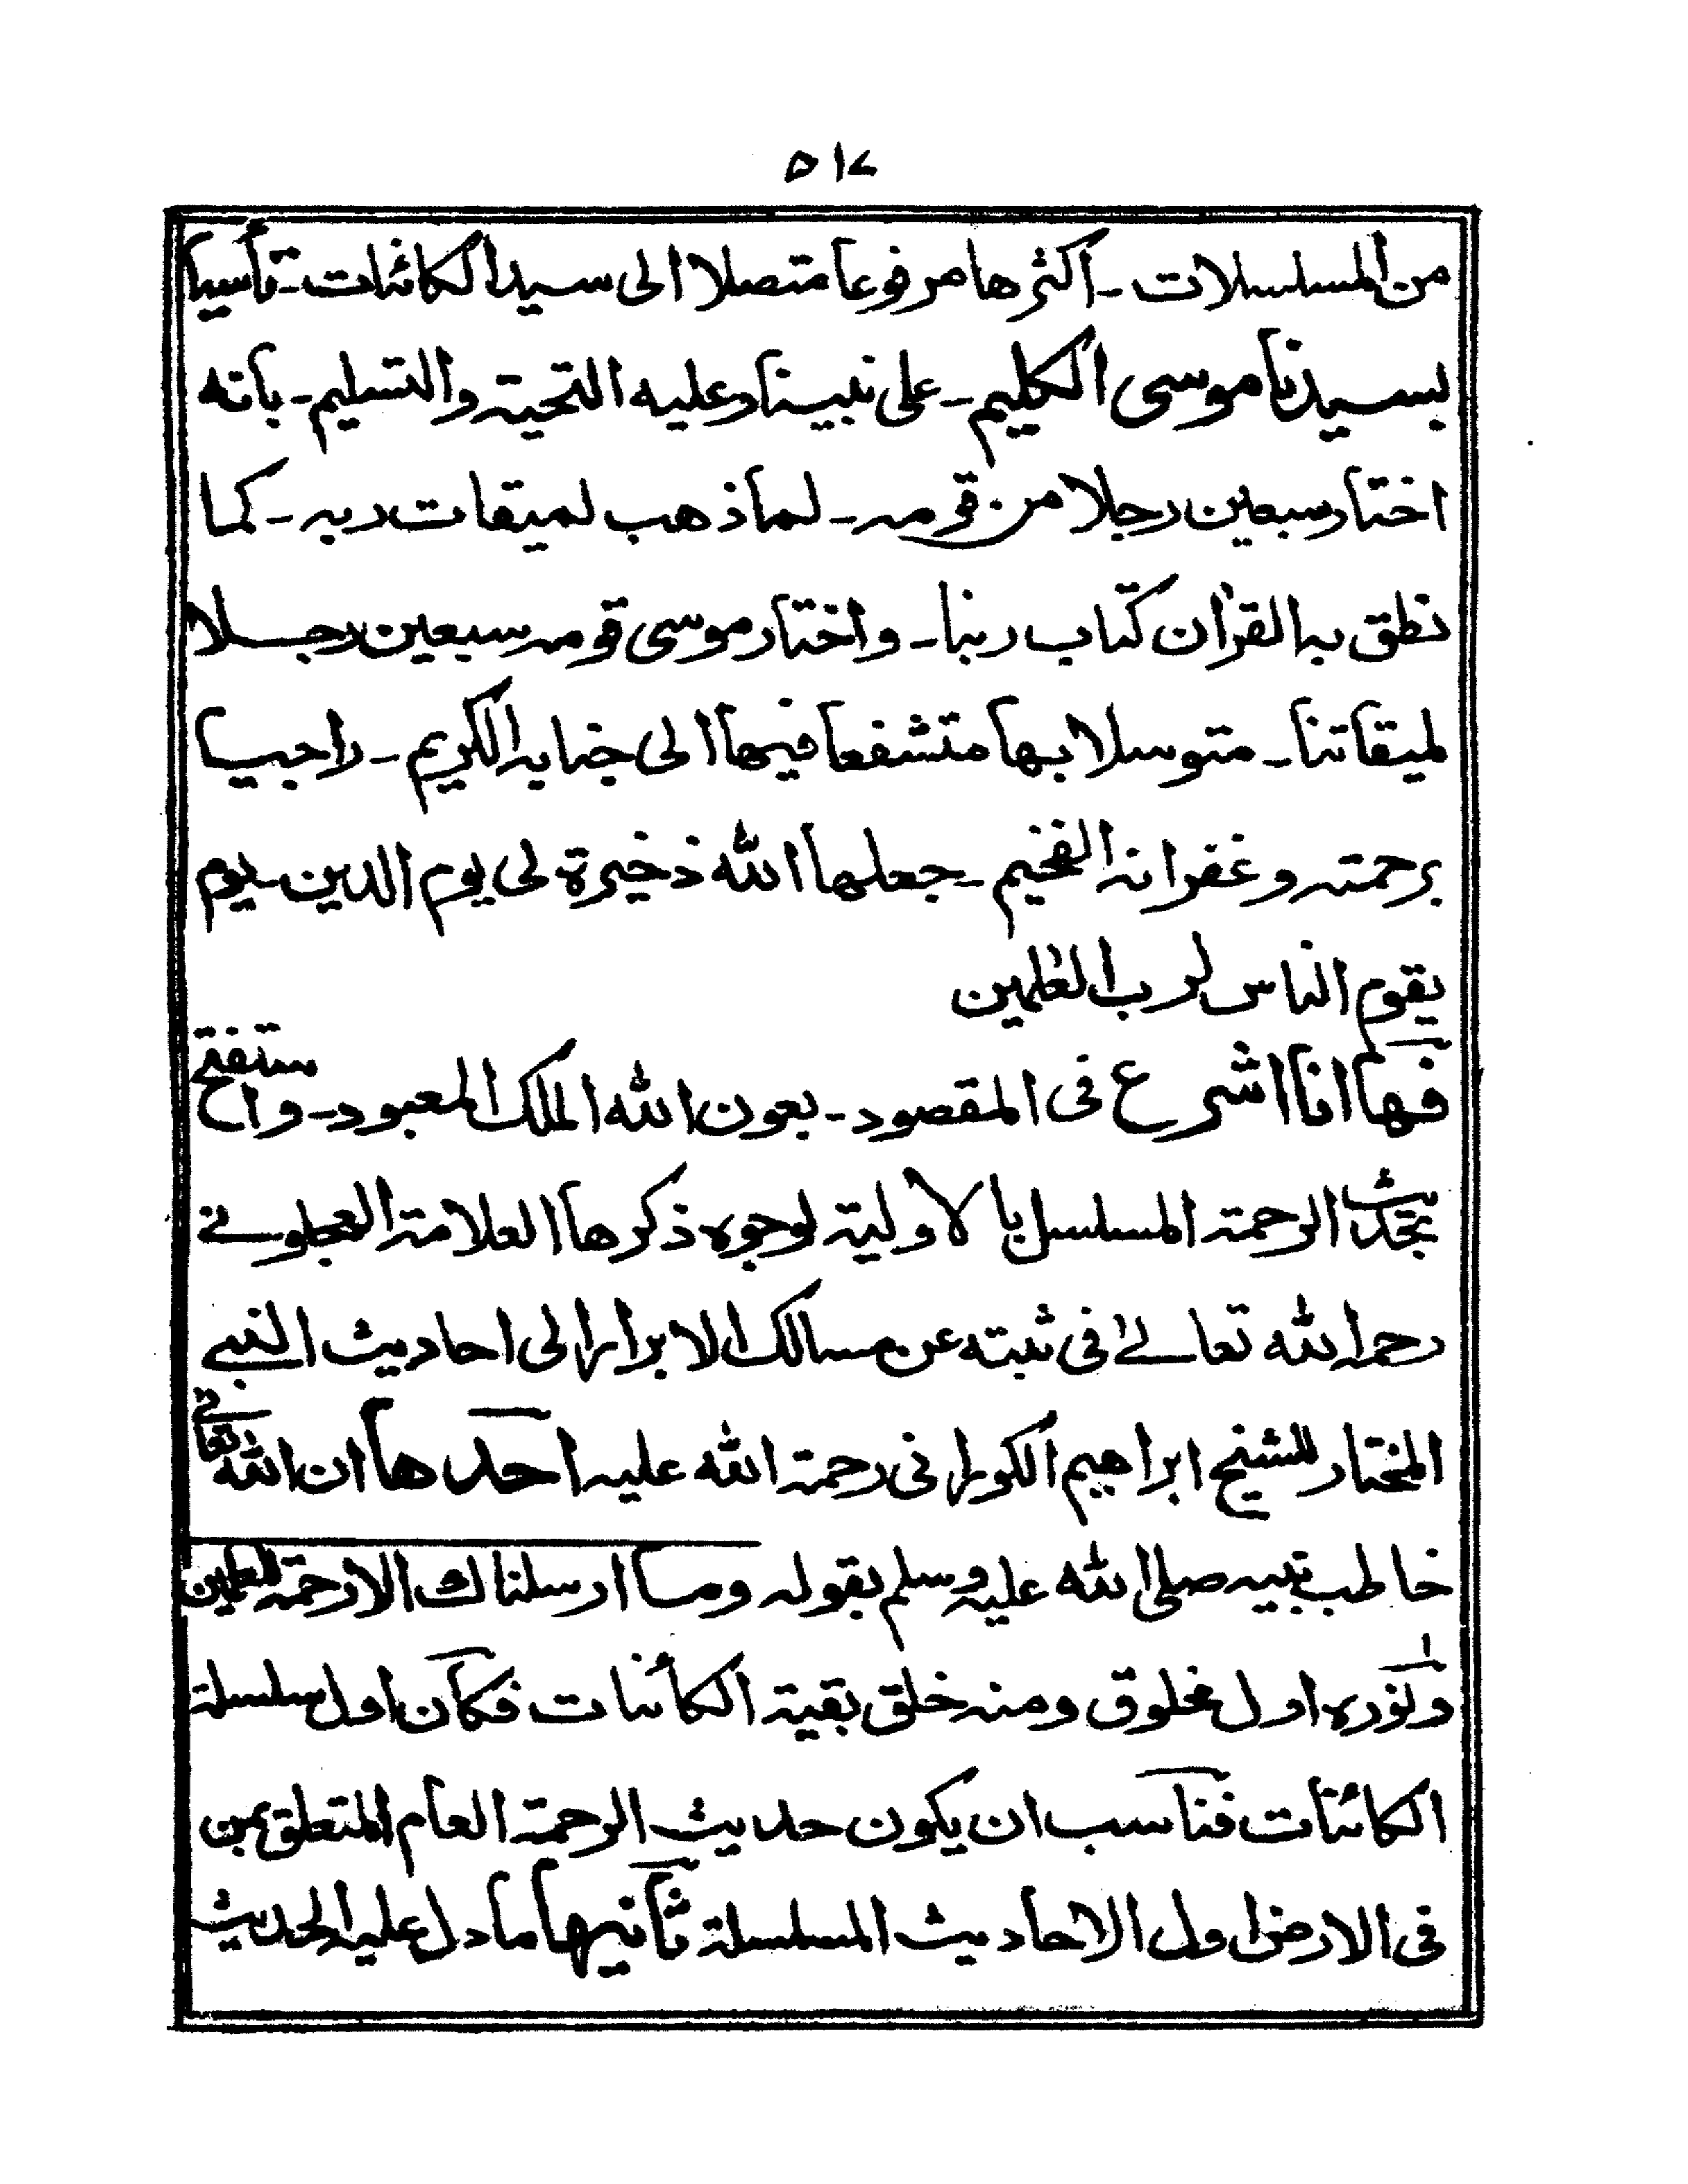 ٥١٧
من المسلسلات ـ اكثرها مرفوعا متصلا الى سيد الكائنات ـ تأسيا
بسيدنا موسى الكليم ـ على نبينا وعليه التحية والتسليم ـ بانه
اختار سبعين رجلا من قومه ـ لما ذهب لميقات ربه ـ كما
نطق به القرأن كتاب ربنا ـ واختار موسى قومه سبعين رجلا
لميقاتنا ـ متوسلا بها متشفعا فيها الى جنابه الكريم ـ راجيا
برحمته وغفرانه الفخيم ـ جعلها الله ذخيرة لى يوم الدين ـ يوم
يقوم الناس لرب العٰلمين
فها انا اشرع فى المقصود ـ بعون الله الملك المعبود ـ واستفتح
بحديث الرحمة المسلسل بالاولية لوجوه ذكرها العلامة العجلونے
رحمه الله تعالےٰ فى ثبته عن مسالك الابرار الى احاديث النبے
المختار للشيخ ابراهيم الكورانى رحمة الله عليه احدها ان الله تعالےٰ
خاطب نبيه صلى الله عليه وسلم بقوله وما ارسلناك الا رحمة للعٰلمين
ونوره اول مخلوق ومنه خلق بقية الكائنات فكان اول سلسلة
الكائنات فناسب ان يكون حديث الرحمة العام المتعلق بمن
فى الارض اول الاحاديث المسلسلة ثانيها ما دل عليه الحديث